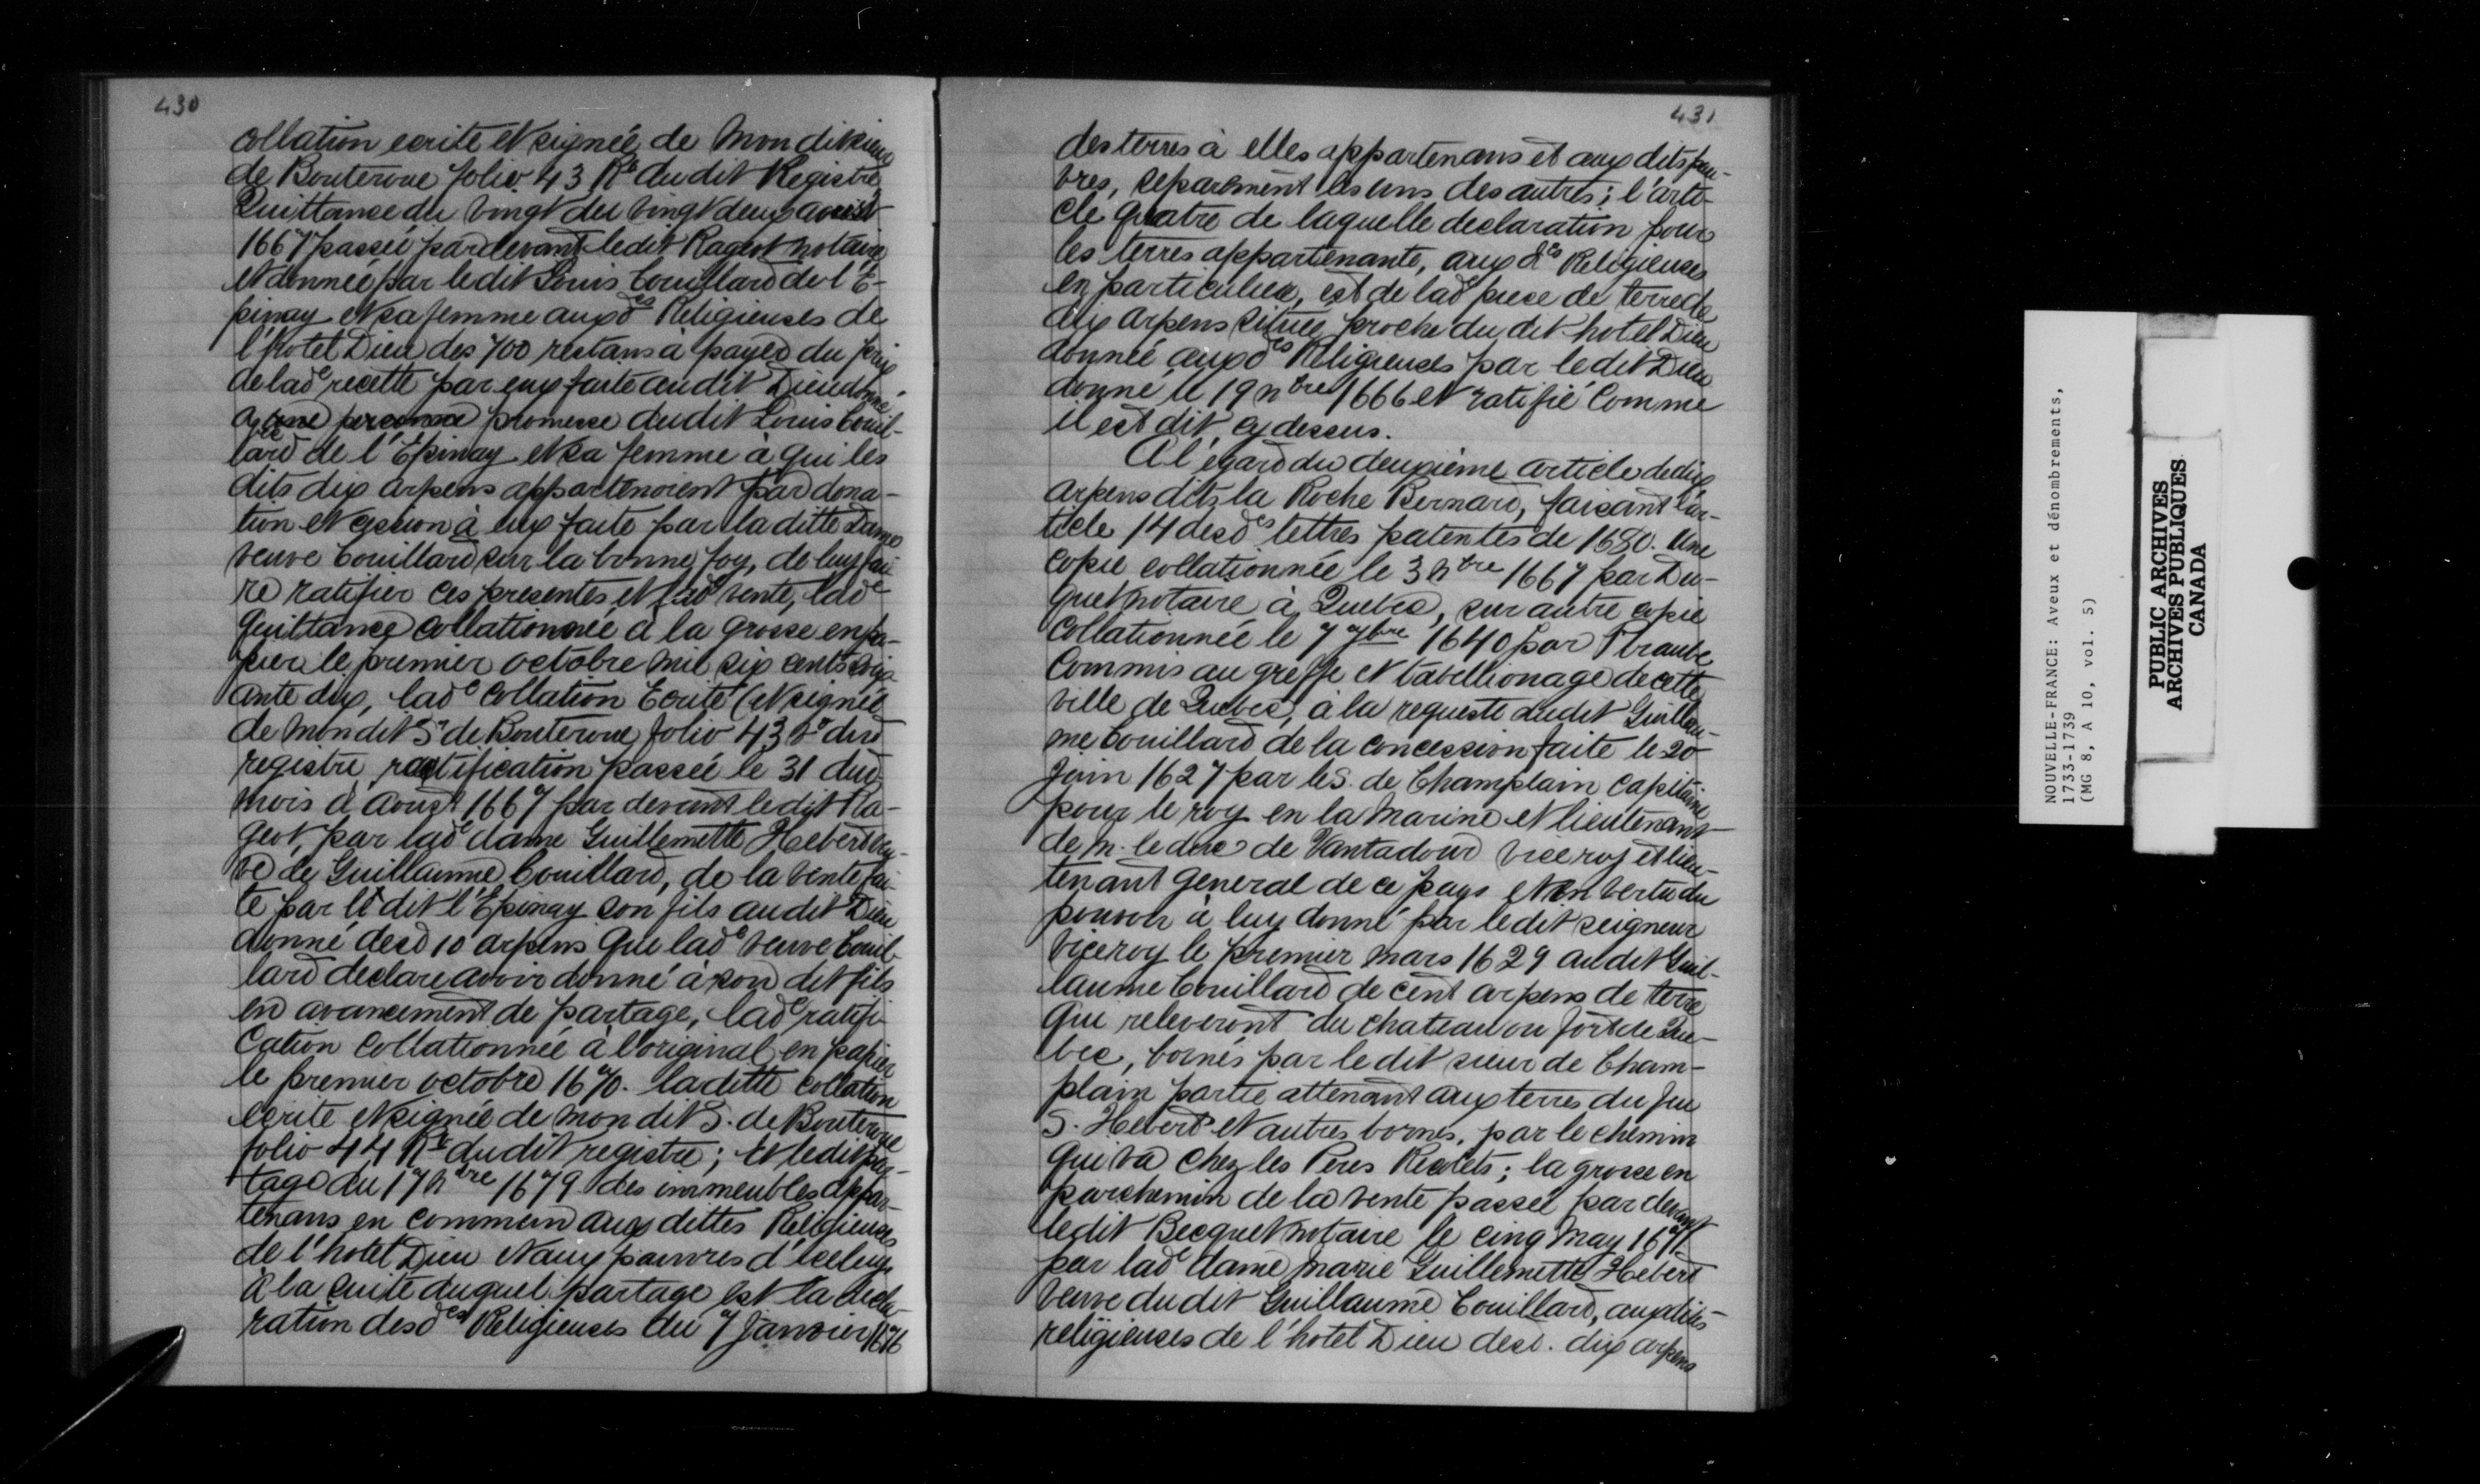 430
collation ecrite et signée de mon dit sieur
de Bouteroue folio 43 Ro dudit Registre,
Quittance du vingt du vingt deux aoust
1667 passée pardevant ledit Rageot notaire
et donnée par ledit Louis Couillard de l'E-
pinay et sa femme auxdes Religieuses de
l'hotel Dieu des 700 restans à payer du prix
de lade recette par eux faite audit Dieudonné
avec promesse dudit Louis Couil-
lard de l'Epinay et sa femme à qui les
dits dix arpens appartenoient par dona-
tion et cession à eux faite par la ditte Dame
veuve Couillard sur la bonne foy, de luy fai
re ratifier ces presentes et lade vente, lade
quittance collationnée à la grosse en pa-
pier le premier octobre mil six cents soix
ante dix, lade collation Ecrite et signée
de mondit Sr de Bouteroue folio 43 Vo dud
registre, ractification passée le 31 dud
mois d'Aoust 1667 par devant ledit Ra-
geot, par lade dame Guillemette Hebert veu-
ve de Guillaume Couillard, de la vente fai-
te par le dit l'Epinay son fils audit Dieu
donné desd 10 arpens que lade veuve Couil-
lard declare avoir donné à son dit fils
en avancement de partage, lade ratifi
cation collationnée à l'original en papier
le premier octobre 1670. ladite collation
ecrite et signée de mon dit S. de Bouteroue
folio 44 Ro dudit registre; et ledit par-
tage du 17 nbre 1679 des immeubles appar-
tenans en commun aux dittes Religieuses
de l'hotel Dieu et aux pauvres d'iceluy
à la suite duquel partage est la decla-
ration desdes Religieuses du 7 Janvier 1676
431
des terres à elles appartenans et aux dits pau-
vres, separément les uns des autres; l'arti-
cle quatre de laquelle declaration pour
les terres appartenante, aux des Religieuses
en particulier, est de lade piece de terre de
dix arpens située proche du dit hotel Dieu
donnée auxdes Religieuses par ledit Dieu
donné le 19 nbre 1666 et ratifié comme
il est dit cy dessus.
A l'égard du deuxième article de dix
arpens dits la Roche Bernard, faisant l'ar-
ticle 14 desdes lettres patentes de 1680. Une
copie collationnée le 3 nbre 1667 par Du-
quet notaire à Quebec, sur autre copie
collationnée le 7 1640 par
Commis au greffe et tabellionage de cette
ville de Quebec, à la requeste dudit Guillau-
me Couillard de la concession faite le 20
Juin 1627 par le S. de Champlain capitaine
pour le roy en la marine et lieutenant
de M. le duc de Vantadour viceroy et lieu-
tenant general de ce pays et en vertu du
pouvoir à luy donné par ledit seigneur
viceroy le premier mars 1629 audit Guil-
laume Couillard de cent arpens de terre
qui releveront du chateau ou fort de Que-
bec, bornés par ledit sieur de Cham-
plain partie attenant aux terres du feu
S. Hebert et autres bornes, par le chemin
qui va chez les Peres Recolets; la grosse en
parchemin de la vente passée par devant
ledit Becquet notaire le cinq may 1671
par lade dame Marie Guillemette Hebert
veuve dudit Guillaume Couillard, auxdites
religieuses de l'hotel Dieu desd. dix arpens
NOUVELLE-FRANCE: Aveux et dénombrements,
1733-1739
(MG 8, A 10, vol. 5)
PUBLIC ARCHIVES
ARCHIVES PUBLIQUES
CANADA